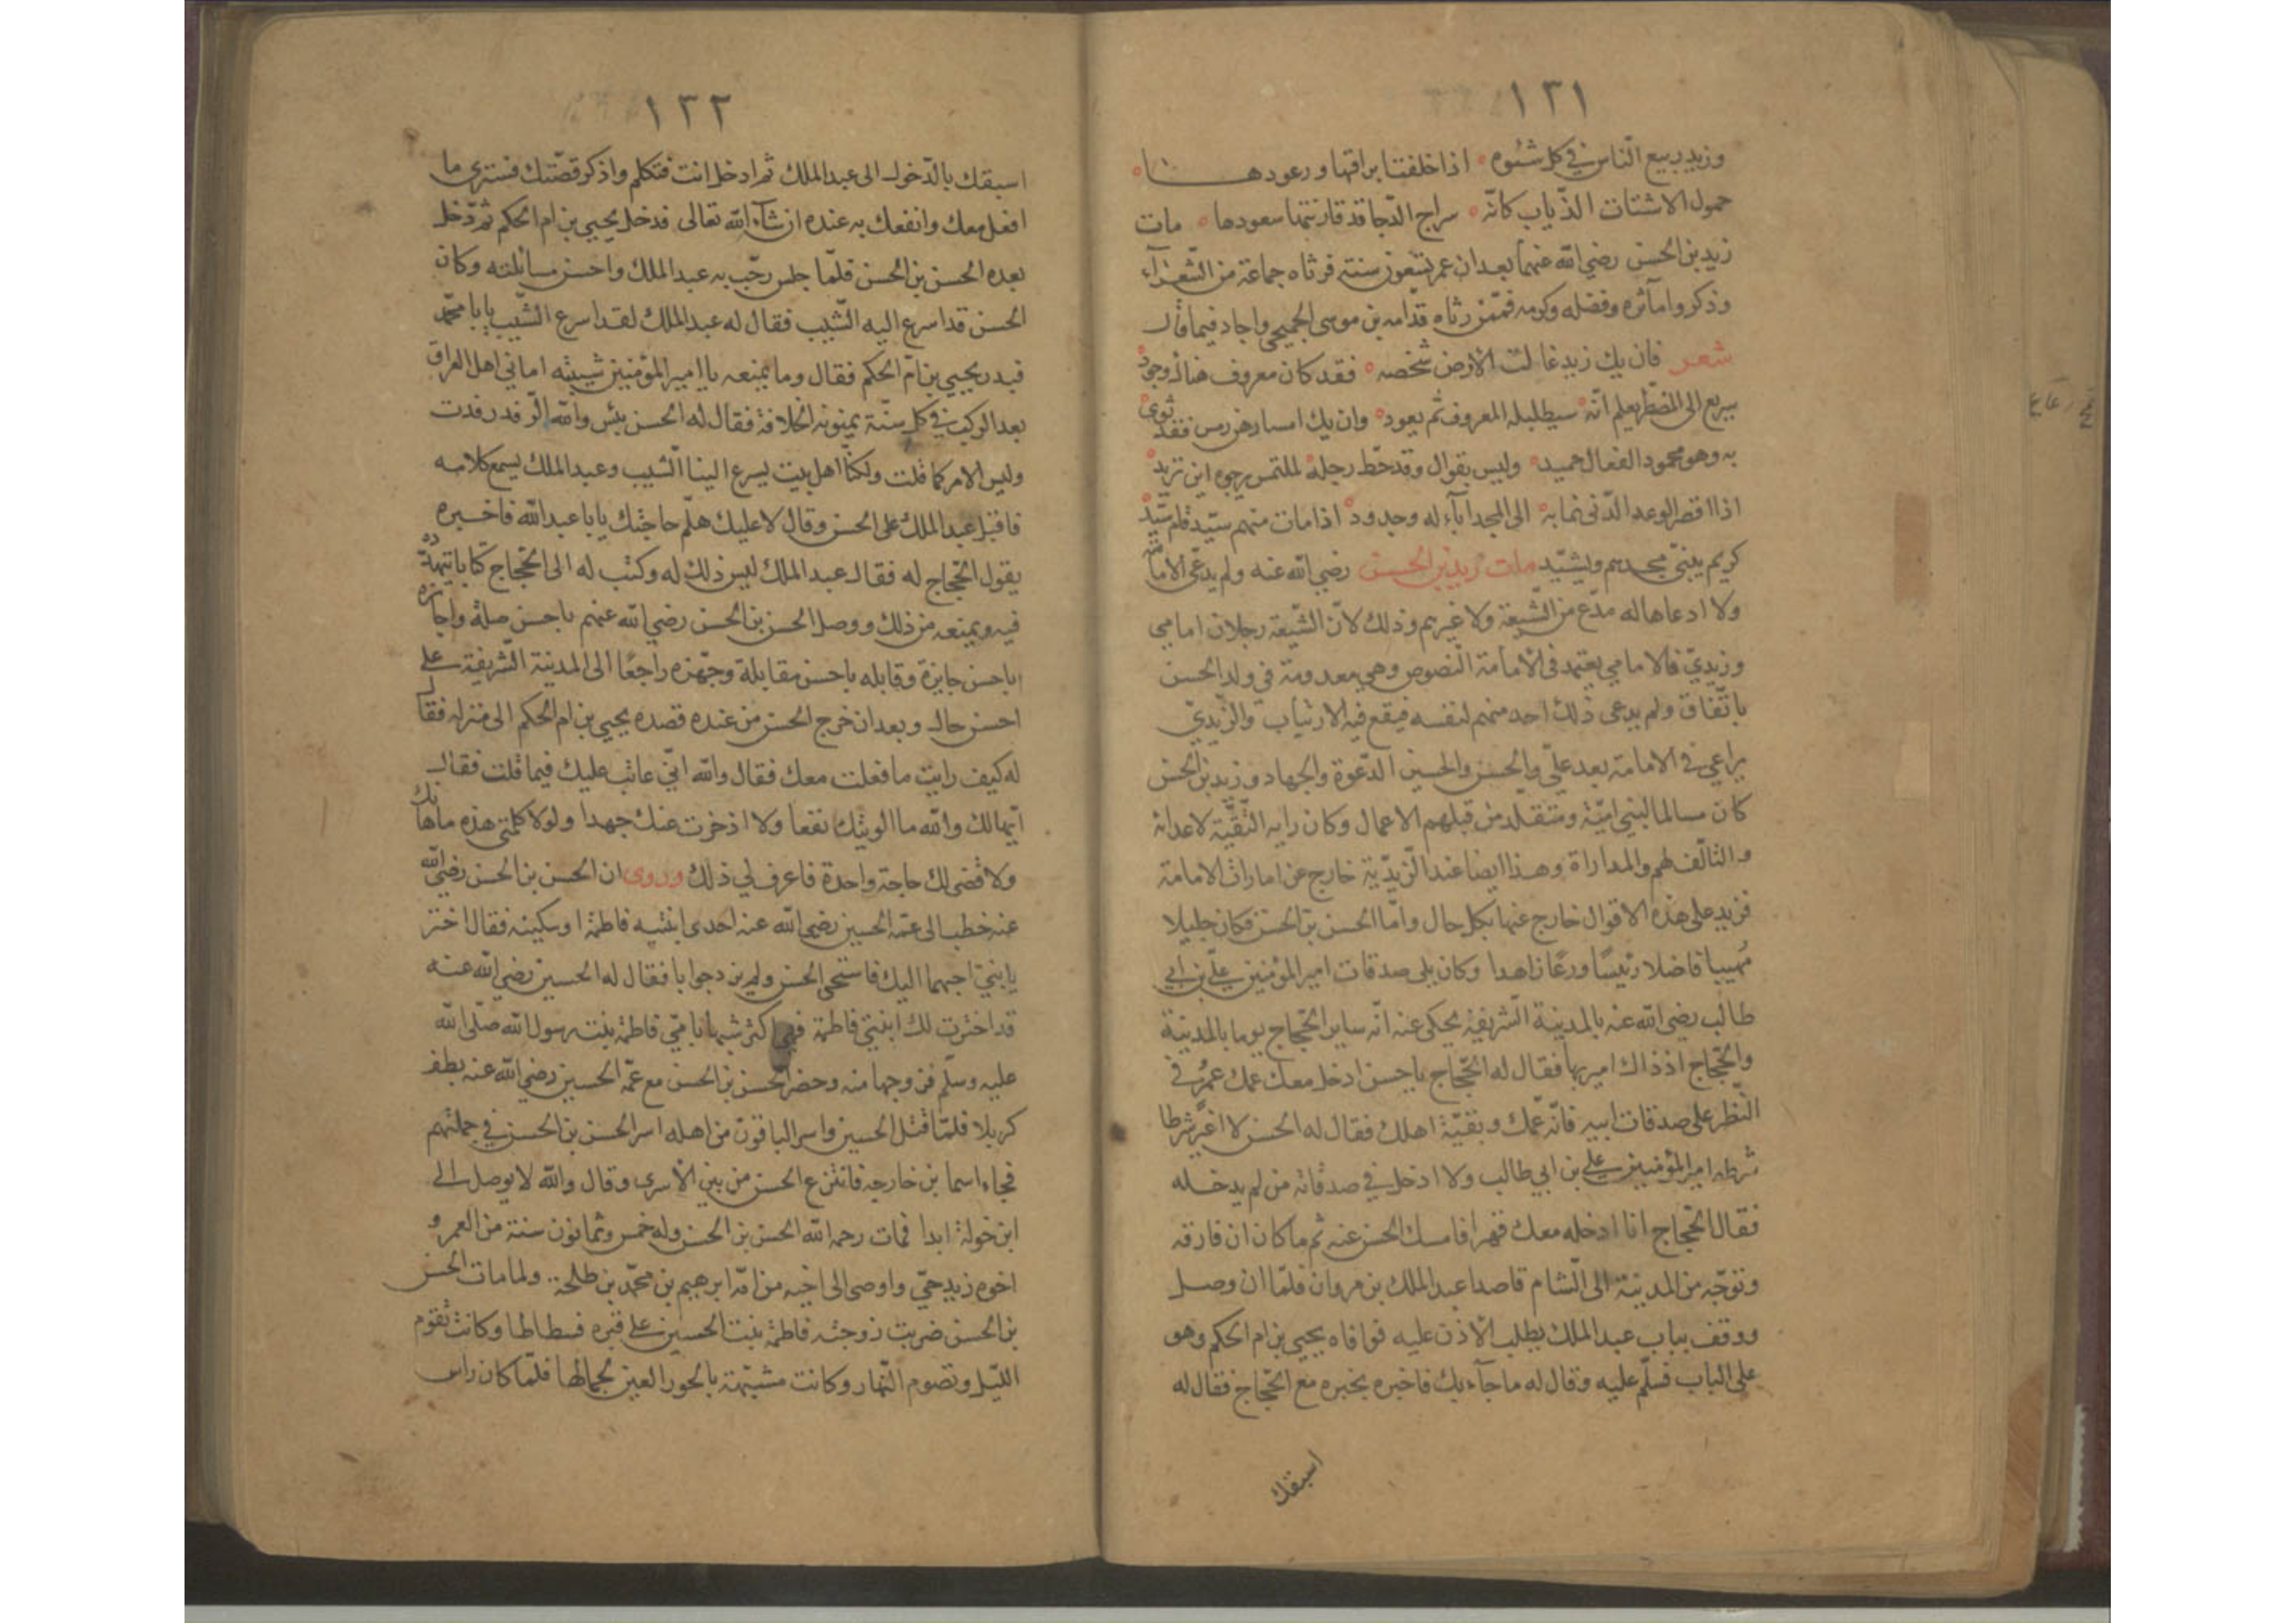 ١٣١
وزيد ربيع الناس في كل شتوه اذا خلفتنا براقها ورعودها
حمول الاشتات الذياب كانّه سراج الدّجا قد قارنتها سعودها مات
زيد بن الحسن رضي الله عنهما بعد ان عمر تسعون سنة فرثاه جماعة من الشعرآء
وذكروا مآثره وفضله وكرمه فممّن رثاه قدّامه بن موسى الجميحي واجاد فيما قال
شعر فان يك زيد غالت الارض شخصه فقد كان معروف هناك وجود
سريع الى المضطر يعلم انّه سيطلبله المعروف ثم يعود وان يك امسا رهن رمس فقد ثوى
به وهو محمود الفعال حميد وليس بقوال وقد حطّ رحله لملتمس يرجوه اين تريد
اذا اقصر الوعد الدّنى نما به الى المجد اباء له وجدود اذا مات منهم سيّد قام سيّد
كريم يبنى مجدهم ويشيّد مات زيد بن الحسن رضي الله عنه ولم يدّعي الامامة
ولا ادعاها له مدّع من الشّيعة ولا غيرهم وذلك لانّ الشّيعة رجلان امامي
وزيديّ فالامامي يعتمد في الامامة النّصوص وهي معدومة في ولد الحسن
باتّفاق ولم يدعى ذلك احد منهم لنفسه فيقع فيه الارتياب والزّيديّ
يراعي في الامامة بعد عليّ والحسن والحسين الدّعوة والجهاد وزيد بن الحسن
كان مسالما لبني اميّة ومتقلّد من قبلهم الاعمال وكان رايه التّقيّة لاعدائه
والتآلّف لهم والمداراة وهذا ايضا عند الزّيديّة خارج عن امارات الامامة
فزيد على هذه الاقوال خارج عنها بكل حال وامّا الحسن بن الحسن فكان جليلا
مُهيبا فاضلا رئيسًا ورعًا زاهدا وكان يلى صدقات امير المؤمنين عليّ بن ابي
طالب رضي الله عنه بالمدينة الشّريفة يحكى عنه انّه ساير الحجّاج يوما بالمدينة
والحجّاج اذ ذاك اميرها فقال له الحجّاج ياحسن ادخل معك عمك عمرُ في
النّظر على صدقات ابيه فانّه عمّك وبقيّة اهلك فقال له الحسن لا اغيّر شرطا
شرطه امير المؤمنين علي بن ابي طالب ولا ادخل في صدقاته من لم يدخله
فقال الحجّاج انا ادخله معك قهرا فامسك الحسن عنه ثم ما كان ان فارقه
وتوجّه من المدينة الى الشام قاصدا عبد الملك بن مروان فلمّا ان وصل
ووقف بباب عبد الملك يطلب الاذن عليه فوافاه يحيى بن ام الحكم وهو
على الباب فسلّم عليه وقال له ما جآء بك فاخبره بخبره مع الحجّاج فقال له
اسبقك
١٣٢
اسبقك بالدّخول الى عبد الملك ثم ادخل انت فتكلم واذكر قصّتك فسترى ما
افعل معك وانفعك به عنده ان شآء الله تعالى فدخل يحيى بن ام الحكم ثم دخل
بعده الحسن بن الحسن فلمّا جلس رحّب به عبد الملك واحسن مسائلته وكان
الحسن قد اسرع اليه الشّيب فقال له عبد الملك لقد اسرع الشّيب يابا محمّد
فبدر يحيى بن امّ الحكم فقال وما يمنعه يا امير المؤمنين شيبته اماني اهل العراق
بعد الركب في كل سنّة يمنونه الخلافة فقال له الحسن بئس والله الرّفد رفدت
وليس الامر كما قلت ولكنّا اهل بيت يسرع الينا الشيب وعبد الملك يسمع كلامه
فاقبل عبد الملك على الحسن وقال لا عليك هلمّ حاجتك يابا عبد الله فاخبره
بقول الحجّاج له فقال عبد الملك ليس ذلك له وكتب له الى الحجّاج كتابا يتهدّده
فيه ويمنعه من ذلك ووصل الحسن بن الحسن رضي الله عنهم باحسن صلة واجازه
باحسن جايزة وقابله باحسن مقابلة وجهّزه راجعًا الى المدينة الشّريفة على
احسن حال وبعد ان خرج الحسن من عنده قصده يحيى بن ام الحكم الى منزله فقال
له كيف رايت ما فعلت معك فقال والله انّي عاتب عليك فيما قلت فقال
ايّها لك والله ما الويتك نفعا ولا اذخرت عنك جهدا ولولا كلمتي هذه ما هابك
ولا قضى لك حاجة واحدة فاعرف لي ذلك وروى ان الحسن بن الحسن رضي الله
عنه خطب الى عمّه الحسين رضي الله عنه احدى ابنتيه فاطمة او سكينه فقال اختر
يابني احبهما اليك فاستحى الحسن ولم يرد جوابا فقال له الحسين رضي الله عنه
قد اخترت لك ابنتي فاطمة فهي اكثر شبها بامّي فاطمة بنت رسول الله صلّى الله
عليه وسلّم فزوجها منه وحضر الحسن بن الحسن مع عمّه الحسين رضي الله عنه بطف
كربلا فلمّا قتل الحسين واسر الباقون من اهله اسر الحسن بن الحسن في جملتهم
فجاء اسما بن خارجه فانتزع الحسن من بين الاسرى وقال والله لا يوصل الى
ابن خولة ابدا فمات رحمه الله الحسن بن الحسن وله خمس وثمانون سنة من العمر و
اخوه زيد حيّ واوصى الى اخيه من امّه ابرهيم بن محمّد بن طلحة ولما مات الحسن
بن الحسن ضربت زوجته فاطمة بنت الحسين على قبره فسطاطا وكانت تقوم
الليّل وتصوم النّهار وكانت مشبّهة بالحور العين لجمالها فلمّا كان راس